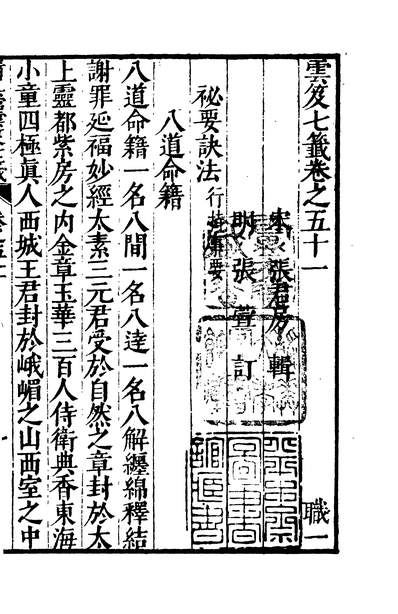 雲笈七籤卷之五十一
職一
宋張君房輯
明張萱訂
祕要訣法
八道命籍
八道命籍一名八間一名八達一名八解纏綿釋結
謝罪延福妙經太素三元君受於自然之章封於太
上靈都紫房之内金章玉華三百人侍衛典香東海
小童四極眞人西城王君封於峨嵋之山西室之中